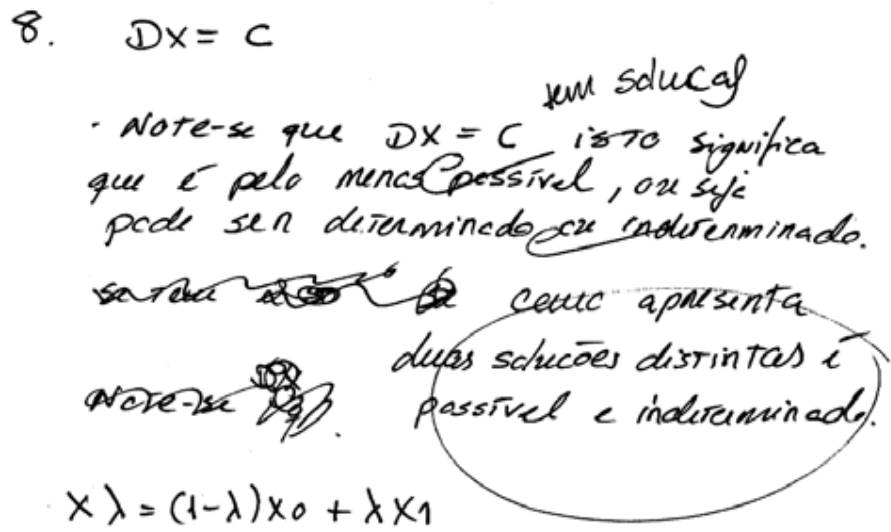 8. DX = C
tem solução
· Note-se que DX = C isto significa
que é pelo menos possível, ou seja
pode ser determinado ou indeterminado.
como apresenta
duas soluções distintas é
Note-se possível e indeterminado.
Xλ = (1-λ)X0 + λX1